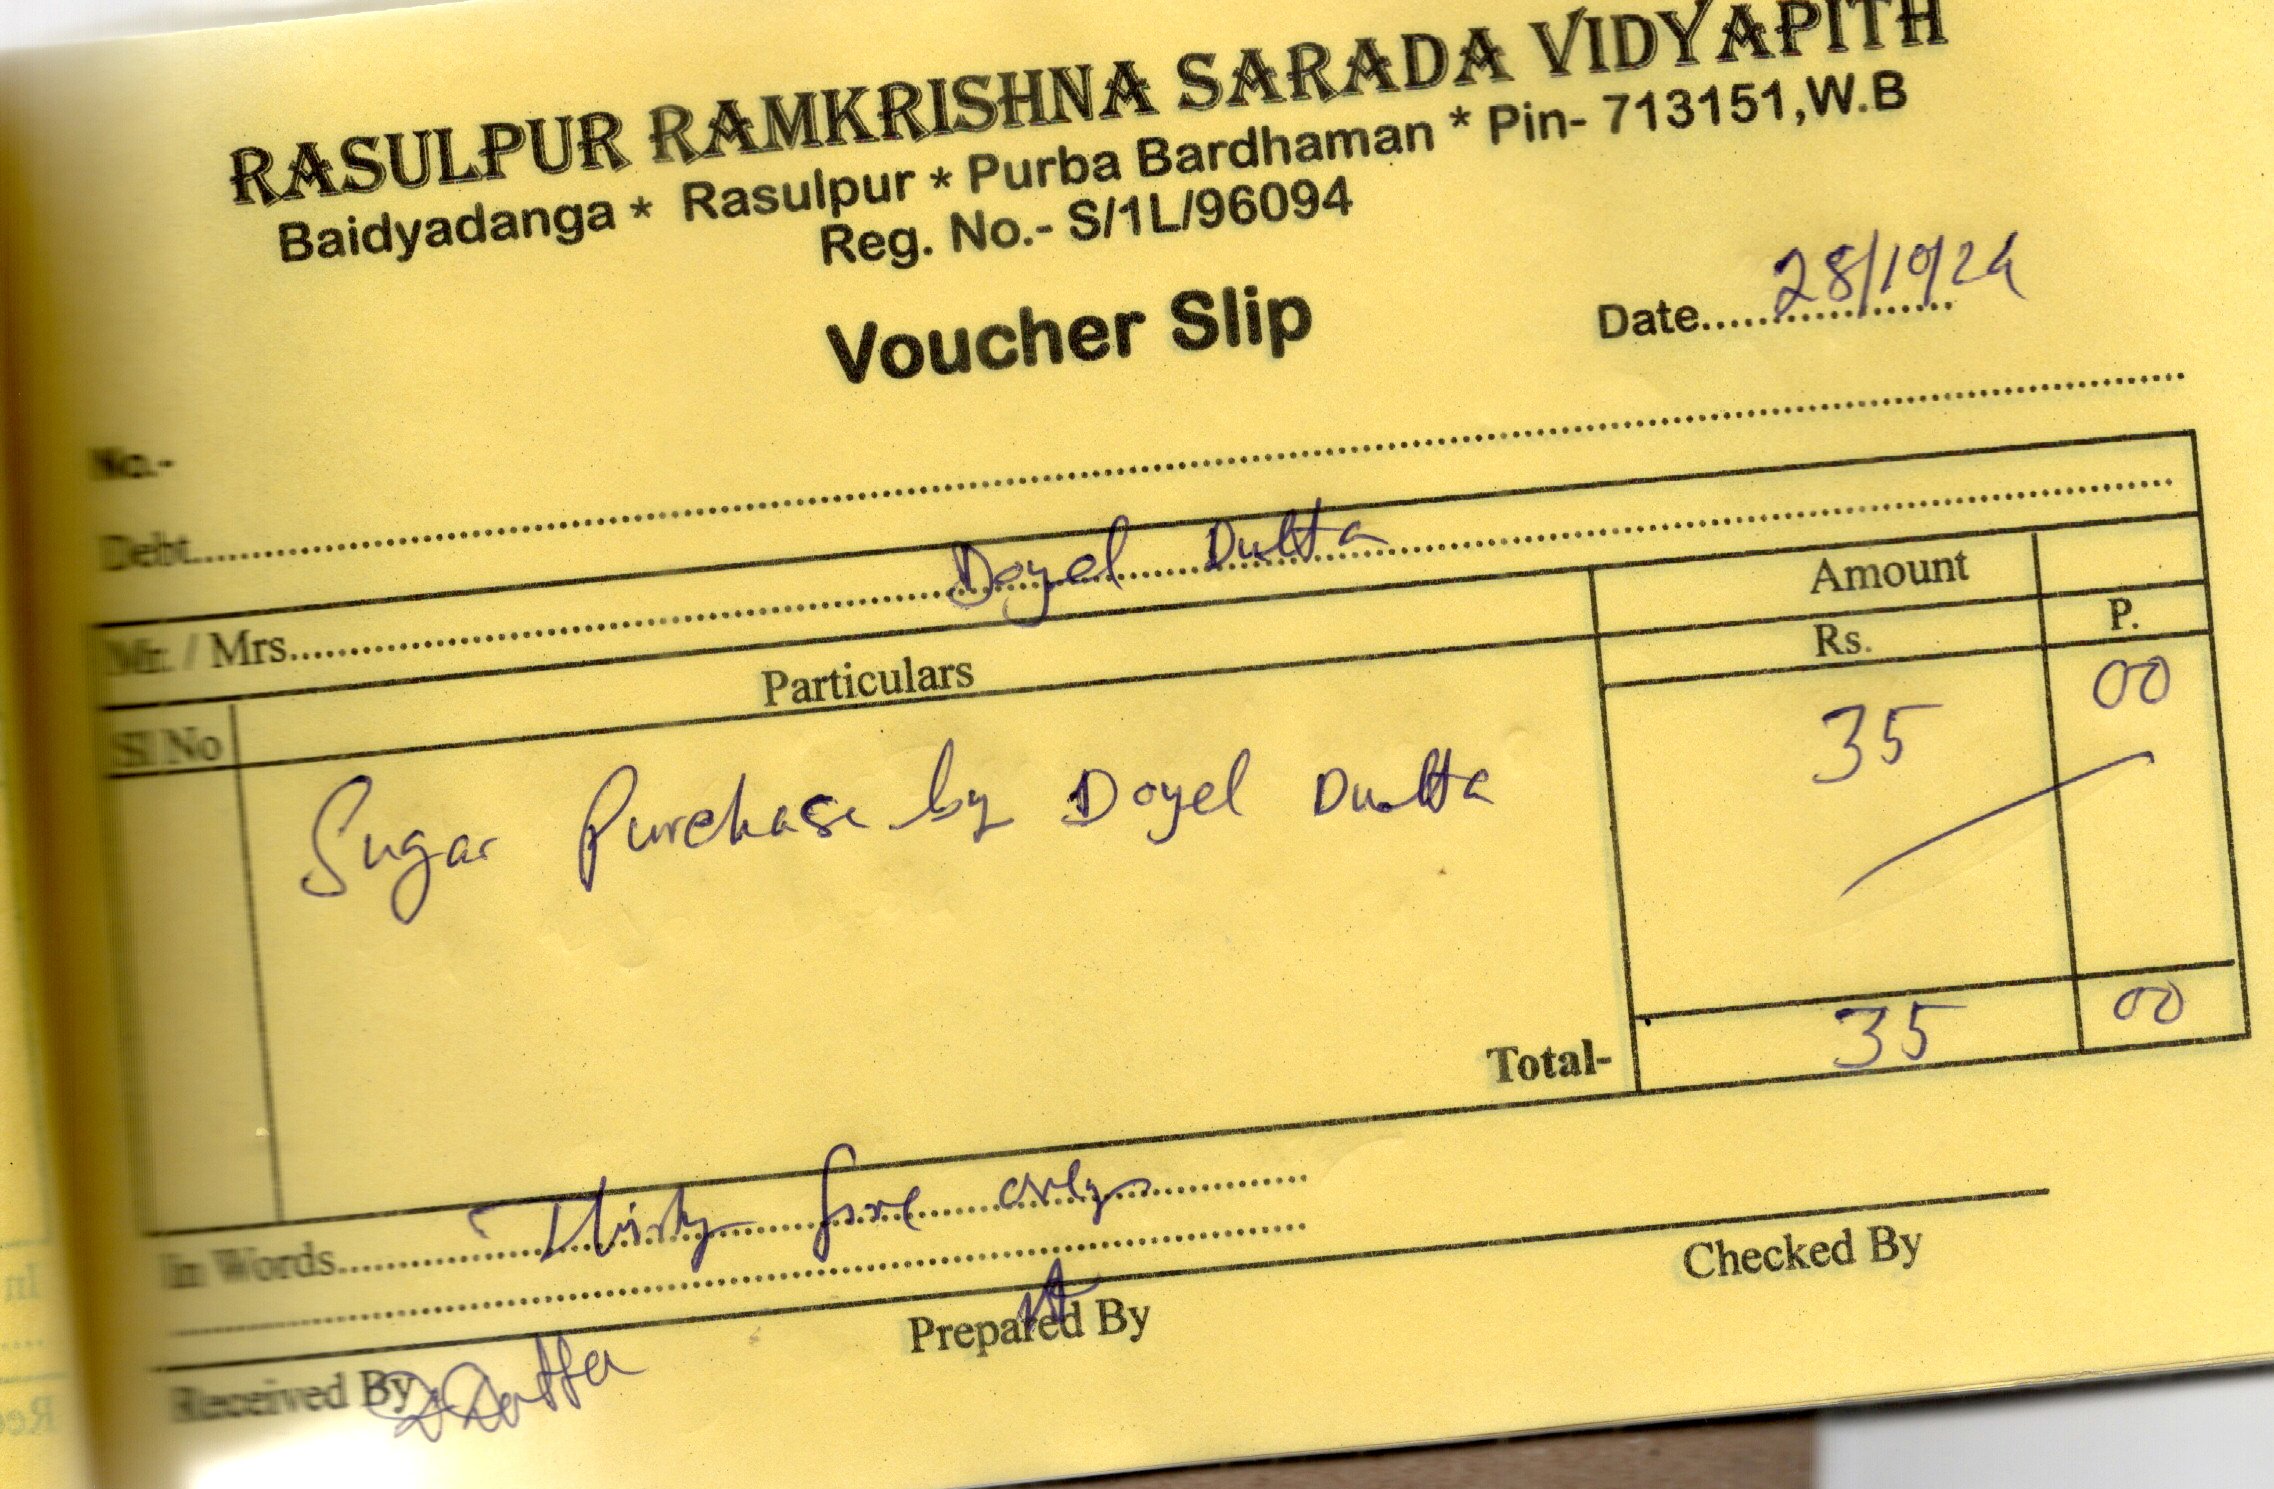 RASULPUR RAMKRISHNA SARADA VIDYAPITH
Baidyadanga * Rasulpur * Purba Bardhaman * Pin- 713151,W.B
Reg. No.- S/1L/96094
Voucher Slip
Date 28/10/24
No.-
Debt
Mr. / Mrs. Doyel Dutta
Sl No Particulars Amount
Rs. P.
Sugar Purchase by Doyel Dutta 35 00
Total- 35 00
In Words Thirty five only
Received By Prepared By Checked By
D Dutta